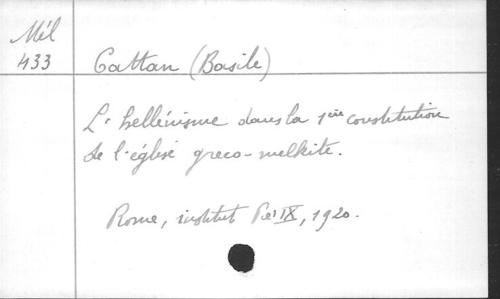 Mél
433
Cattan (Basile)
L'hellénisme dans la 1ère constitution
de l'église greco-melkite.
Rome, institut Pei IX, 1920.